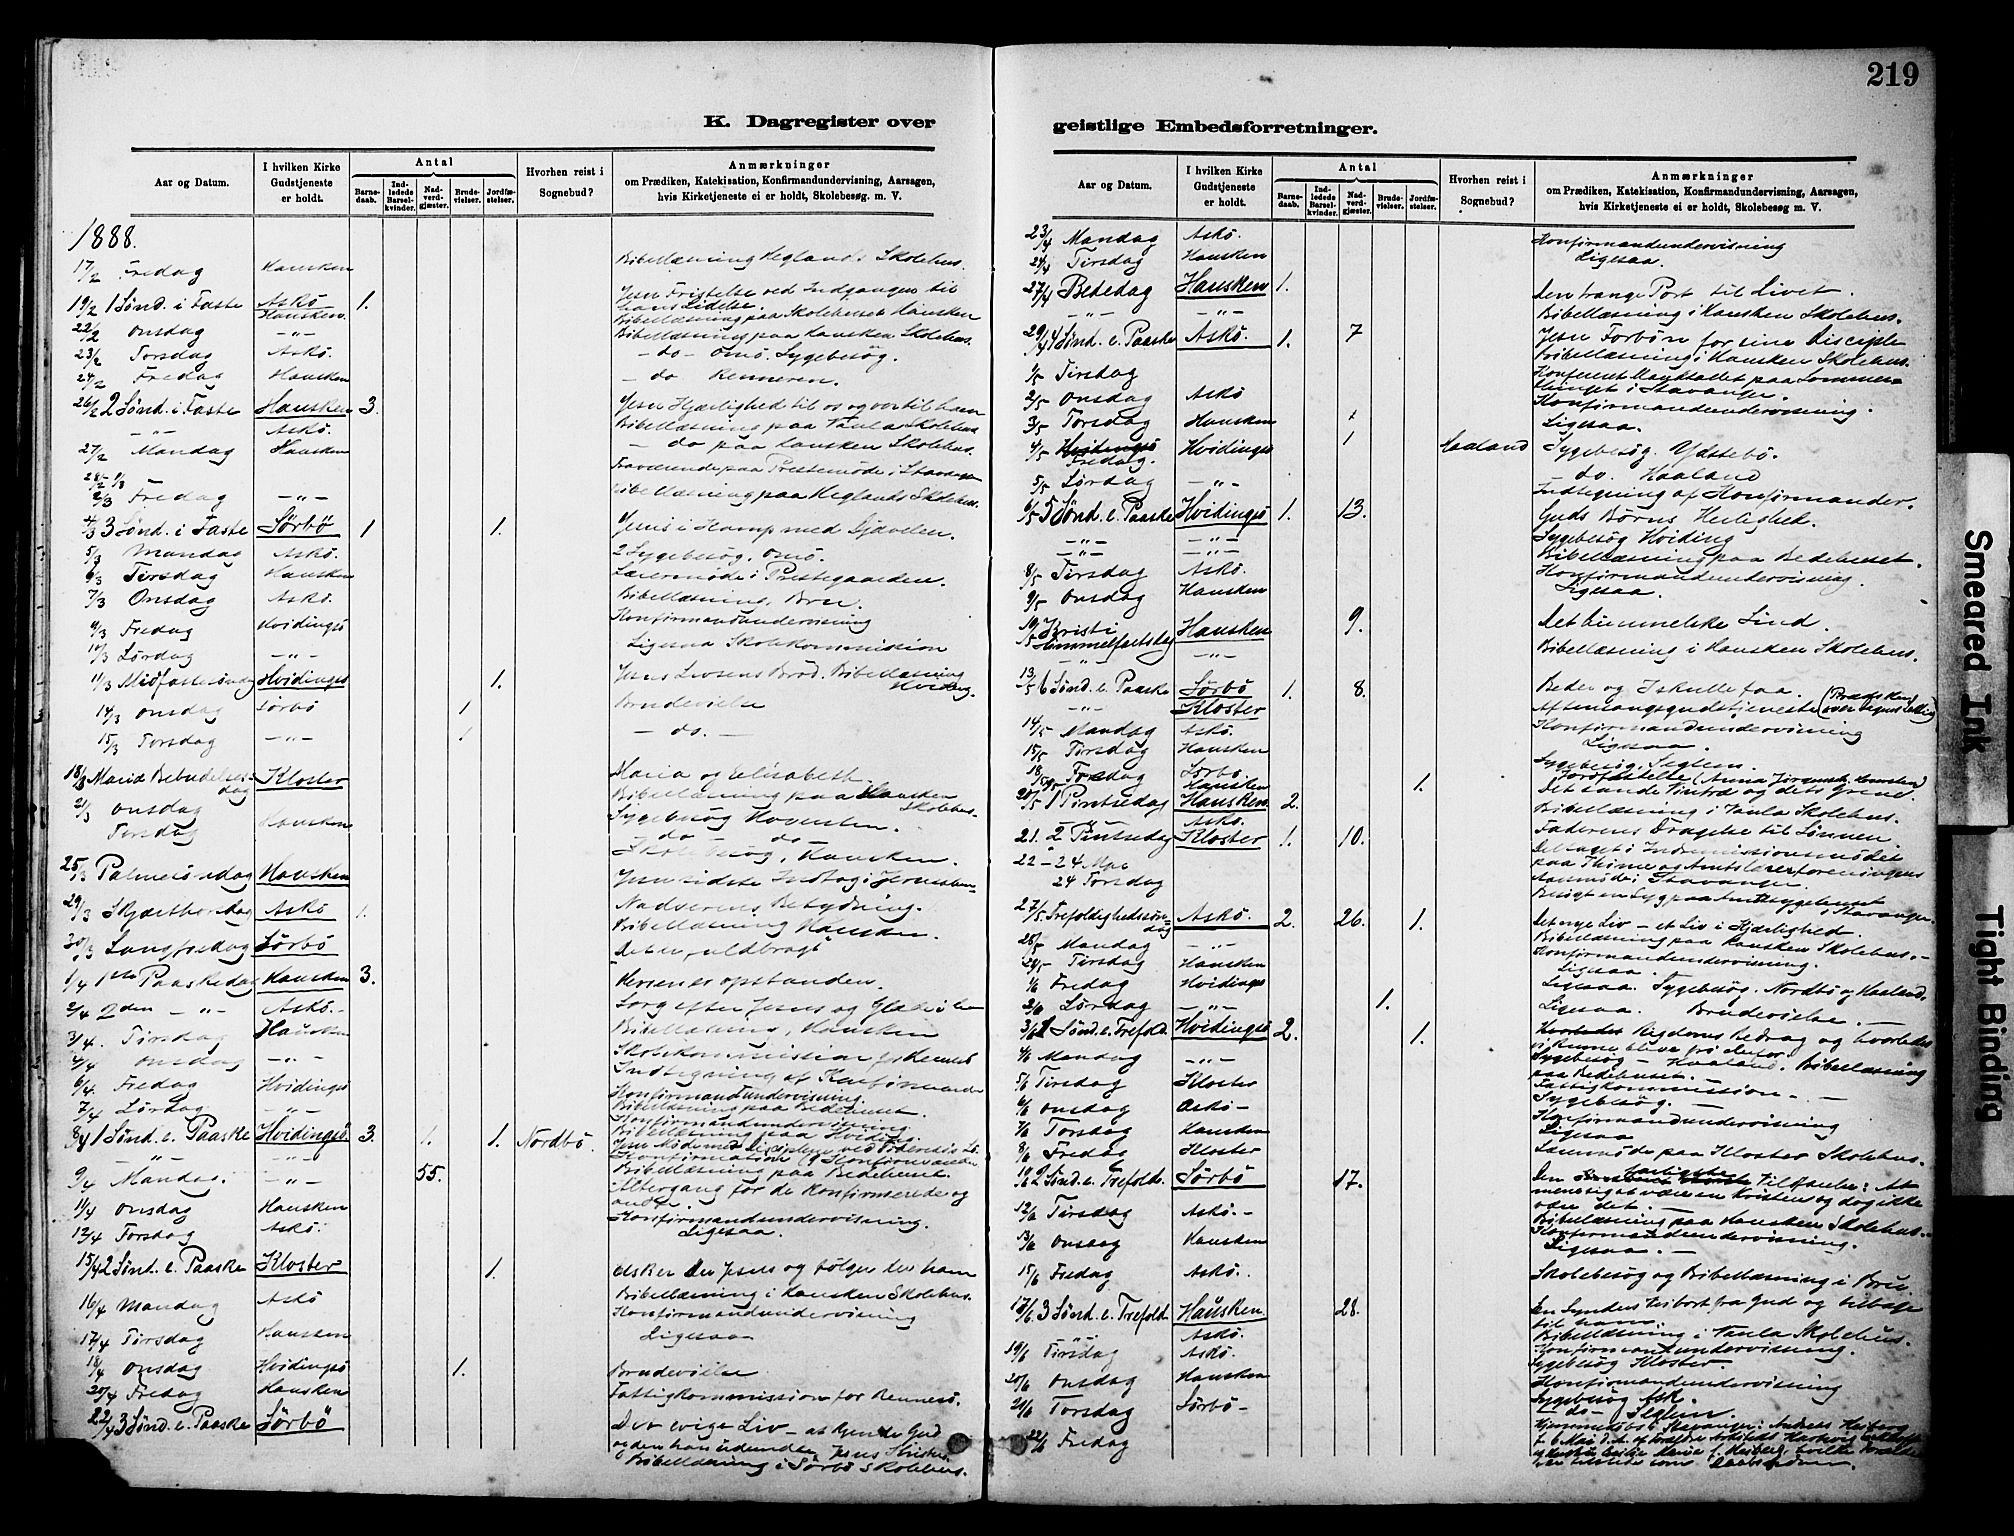 219
K. Dagregister over
geistlige Embedsforretninger.
Aar og Datum.
I hvilken Kirke Gudstjeneste er holdt.
Antal
Barnedaab.
Indledede Barselkvinder.
Nadverdgjæster.
Brudevielser.
Jordfæstelser.
Hvorhen reist i Sognebud?
Anmærkninger
om Prædiken, Katekisation, Konfirmandundervisning, Aarsagen,
hvis Kirketjeneste ei er holdt, Skolebesøg. m. V.
1888.
17/2 Fredag Hausken Bibellæsning Heglands Skolehus.
19/2 1 Sønd. i Faste Askö 1. Jesu Fristelse ved Indgangen til
hans Lidelse.
Hausken Bibellæsning paa Skolehuset Hausken
22/2 Onsdag -"- Bibellæsning paa Hausken Skolehus.
23/2 Torsdag Askö. - do - Omö. Sygebesøg.
24/2 Fredag Hausken - do Renneren.
26/2 2 Sønd. i Faste Hausken 3. Jesu Kjærlighed til os og vor til ham
-"- Askö. Bibellæsning paa Vaula Skolehus
27/2 Mandag Hausken - do paa Hausken Skolehus.
Fraværende paa Prestemøde i Stavanger
2/3 Fredag -"- Bibellæsning paa Heglands Skolehus.
4/3 3 Sønd. i Faste Sörbö 1 1. Jesus i Kamp med Djævelen.
5/3 Mandag Askö. 2 Sygebesøg. Omö.
6/3 Tirsdag Hausken Lærermøde i Prestegaarden.
7/3 Onsdag Askö. Bibellæsning, Bru.
9/3 Fredag Hvidingsö Konfirmandundervisning
10/3 Lørdag -"- Ligesaa Skolekommission
11/3 Midfastesøndag Hvidingsö 1. Jesus Livsens Brød. Bibellæsning
Hviding.
14/3 Onsdag Sörbö 1 Brudevielse
15/3 Torsdag -"- 1 - do. -
18/3 Mariæ Bebudelsesdag Kloster Maria og Elisabeth.
21/3 Onsdag Bibellæsning paa Hausken
Skolehus.
Torsdag Hausken Sygebesøg
- do - do -
Skolebesøg, Hausken.
25/3 Palmesøndag Hausken Jesu sidste Indtog i
29/3 Skjærthorsdag Askö 1. Nadverens Betydning.
Bibellæsning Hausken.
30/3 Langfredag Sörbö "Det er fuldbragt"
1/4 1ste Paaskedag Hausken 3. Herren er opstanden.
2/4 2den -"- Askö. Sorg efter Jesus og Glæde i ham
3/4. Tirsdag Hausken Bibellæsning, Hausken
4/4 Onsdag -"- Skolekommission for Rennesö
6/4. Fredag Hvidingsö Indtegning af Konfirmander
Konfirmandundervisning.
7/4 Lørdag -"- Bibellæsning paa Bedehuset.
Konfirmandundervisning
8/4 1 Sønd. e. Paaske Hvidingsö. 3. 1. 1. Nordbö. Bibellæsning paa Hviding.
-"- -"- Konfirmation (9 Konfirmander
Bibellæsning paa Bedehuset.
9/4 Mandag. -"- 55. Altergang for de konfirmerede og
andre.
11/4 Onsdag Hausken Konfirmandundervisning.
12/4 Torsdag Askö. Ligesaa.
15/4 2 Sønd. e. Paaske Kloster 1. Elsker du Jesus og følger du ham
16/4 Mandag Askö Bibellæsning i Hausken Skolehus.
Konfirmandundervisning
17/4 Tirsdag Hausken Ligesaa
18/4 Onsdag Hvidingsö 1. Brudevielse
20/4 Fredag Hausken Fattigkommission for Rennesö.
22/4 3 Sønd. e. Paaske Sörbö Det evige Liv - at kjende Gud
og den han udsendte, Jesus Kristus.
Bibellæsning i Sörbö Skolehus.
Aar og Datum.
I hvilken Kirke Gudstjeneste er holdt.
Antal
Barnedaab.
Indledede Barselkvinder.
Nadverdgjæster.
Brudevielser.
Jordfæstelser.
Hvorhen reist i Sognebud?
Anmærkninger
om Prædiken, Katekisation, Konfirmandundervisning, Aarsagen,
hvis Kirketjeneste ei er holdt, Skolebesøg m. V.
23/4 Mandag Askö. Konfirmandundervisning
24/4 Tirsdag Hausken Ligesaa.
27/4 Bededag Hausken 1. Den trange Port til Livet.
-"- -"- Bibellæsning i Hausken Skolehus.
29/4 4 Sønd. e. Paaske Askö. 1. 7 Jesu Forbøn for sine Disciple
Bibellæsning i Hausken Skolehus.
1/5 Tirsdag
tinget i Stavanger.
2/5 Onsdag Askö Konfirmandundervisning.
3/5 Torsdag Hausken 1 Ligesaa.
4/5 Fredag. Hvidingsö 1 Haaland Sygebesøg. Ydstebö.
5/5 Lørdag -"- do. Haaland
Indtegning af Konfirmander.
6/5 5 Sønd. e. Paaske Hvidingsö 1. 13. Guds Børns Herlighed.
-"- -"- Sygebesøg Hviding
-"- -"- Bibellæsning paa Bedehuset.
8/5 Tirsdag Askö. Konfirmandundervisning.
9/5 Onsdag Hausken Ligesaa.
10/5 Kristi Himmelfartsdag Hausken 9. Det himmelske Sind.
-"- -"- Bibellæsning i Hausken Skolehus.
13/5 6 Sønd. e. Paaske Sörbö 1. 8. Beder og I skulle faa.
-"- Kloster Aftensangsgudstjeneste
14/5 Mandag Askö. Konfirmandundervisning
15/5 Tirsdag Hausken Ligesaa.
18/5 Fredag Sörbö. Sygebesøg, Seglem.
Hausken 1. Jordfæstelse
20/5 1 Pintsedag Hausken 2. Det sande Vintræ og dets Grene.
-"- Askö. Bibellæsning i Vaula Skolehus.
21. 2 Pintsedag Kloster 1. 10. Faderens Dragelse til Sønnen
22-24 Mai Deltaget i Indremissionsmødet
paa Thime og Amtslærerforeningens
24 Torsdag Aarsmøde i Stavanger.
Stavanger.
27/5 Trefoldighedssøndag Askö. 2. 26. 1. Det nye Liv - et Liv i Kjærlighed.
Bibellæsning paa Hausken Skolehus.-
28/5 Mandag -"- Konfirmandundervisning.
29/5 Tirsdag Hausken Ligesaa.
1/6 Fredag Hvidingsö Ligesaa. Sygebesøg. Nordbö og Haaland.
2/6 Lørdag -"- 1. Ligesaa. Brudevielse.-
3/6 1 Sønd. e. Trefold. Hvidingsö 2. 1. Rigdoms Bedrag og hvorledes
vi kunne blive fri derfor.
4/6 Mandag -"- Sygebesøg - Haaland. Bibellæsning
paa Bedehuset.
5/6 Tirsdag Kloster Fattigkommission.-
6/6 Onsdag Askö- Sygebesøg.-
Konfirmandundervisning
7/6 Torsdag Hausken Ligesaa
8/6 Fredag Kloster paa Kloster Skolehus.
10/6 2 Sønd. e. Trefold. Sörbö 17. Den farligste Tilstand: At
mene sig at være en Kristen og dog ikke
være det.-
12/6 Tirsdag Askö.- Bibellæsning paa Hausken Skolehus.
13/6 Onsdag Hausken Konfirmandundervisning.
Ligesaa.-
15/6 Fredag Askö. Skolebesøg og Bibellæsning i Bru.
17/6 3 Sønd. e. Trefold. Hausken 28. En Synders Bort fra Gud og tilbage
til ham.
-"- Askö. Bibellæsning i Vaula Skolehus.
19/6 Tirsdag Askö. Konfirmandundervisning.
Sygebesøg Kloster.
20/6 Onsdag Hausken Konfirmandundervisning
21/6 Torsdag Sörbö- Sygebesøg Ask.
- do - Seglem.
22/6 Fredag